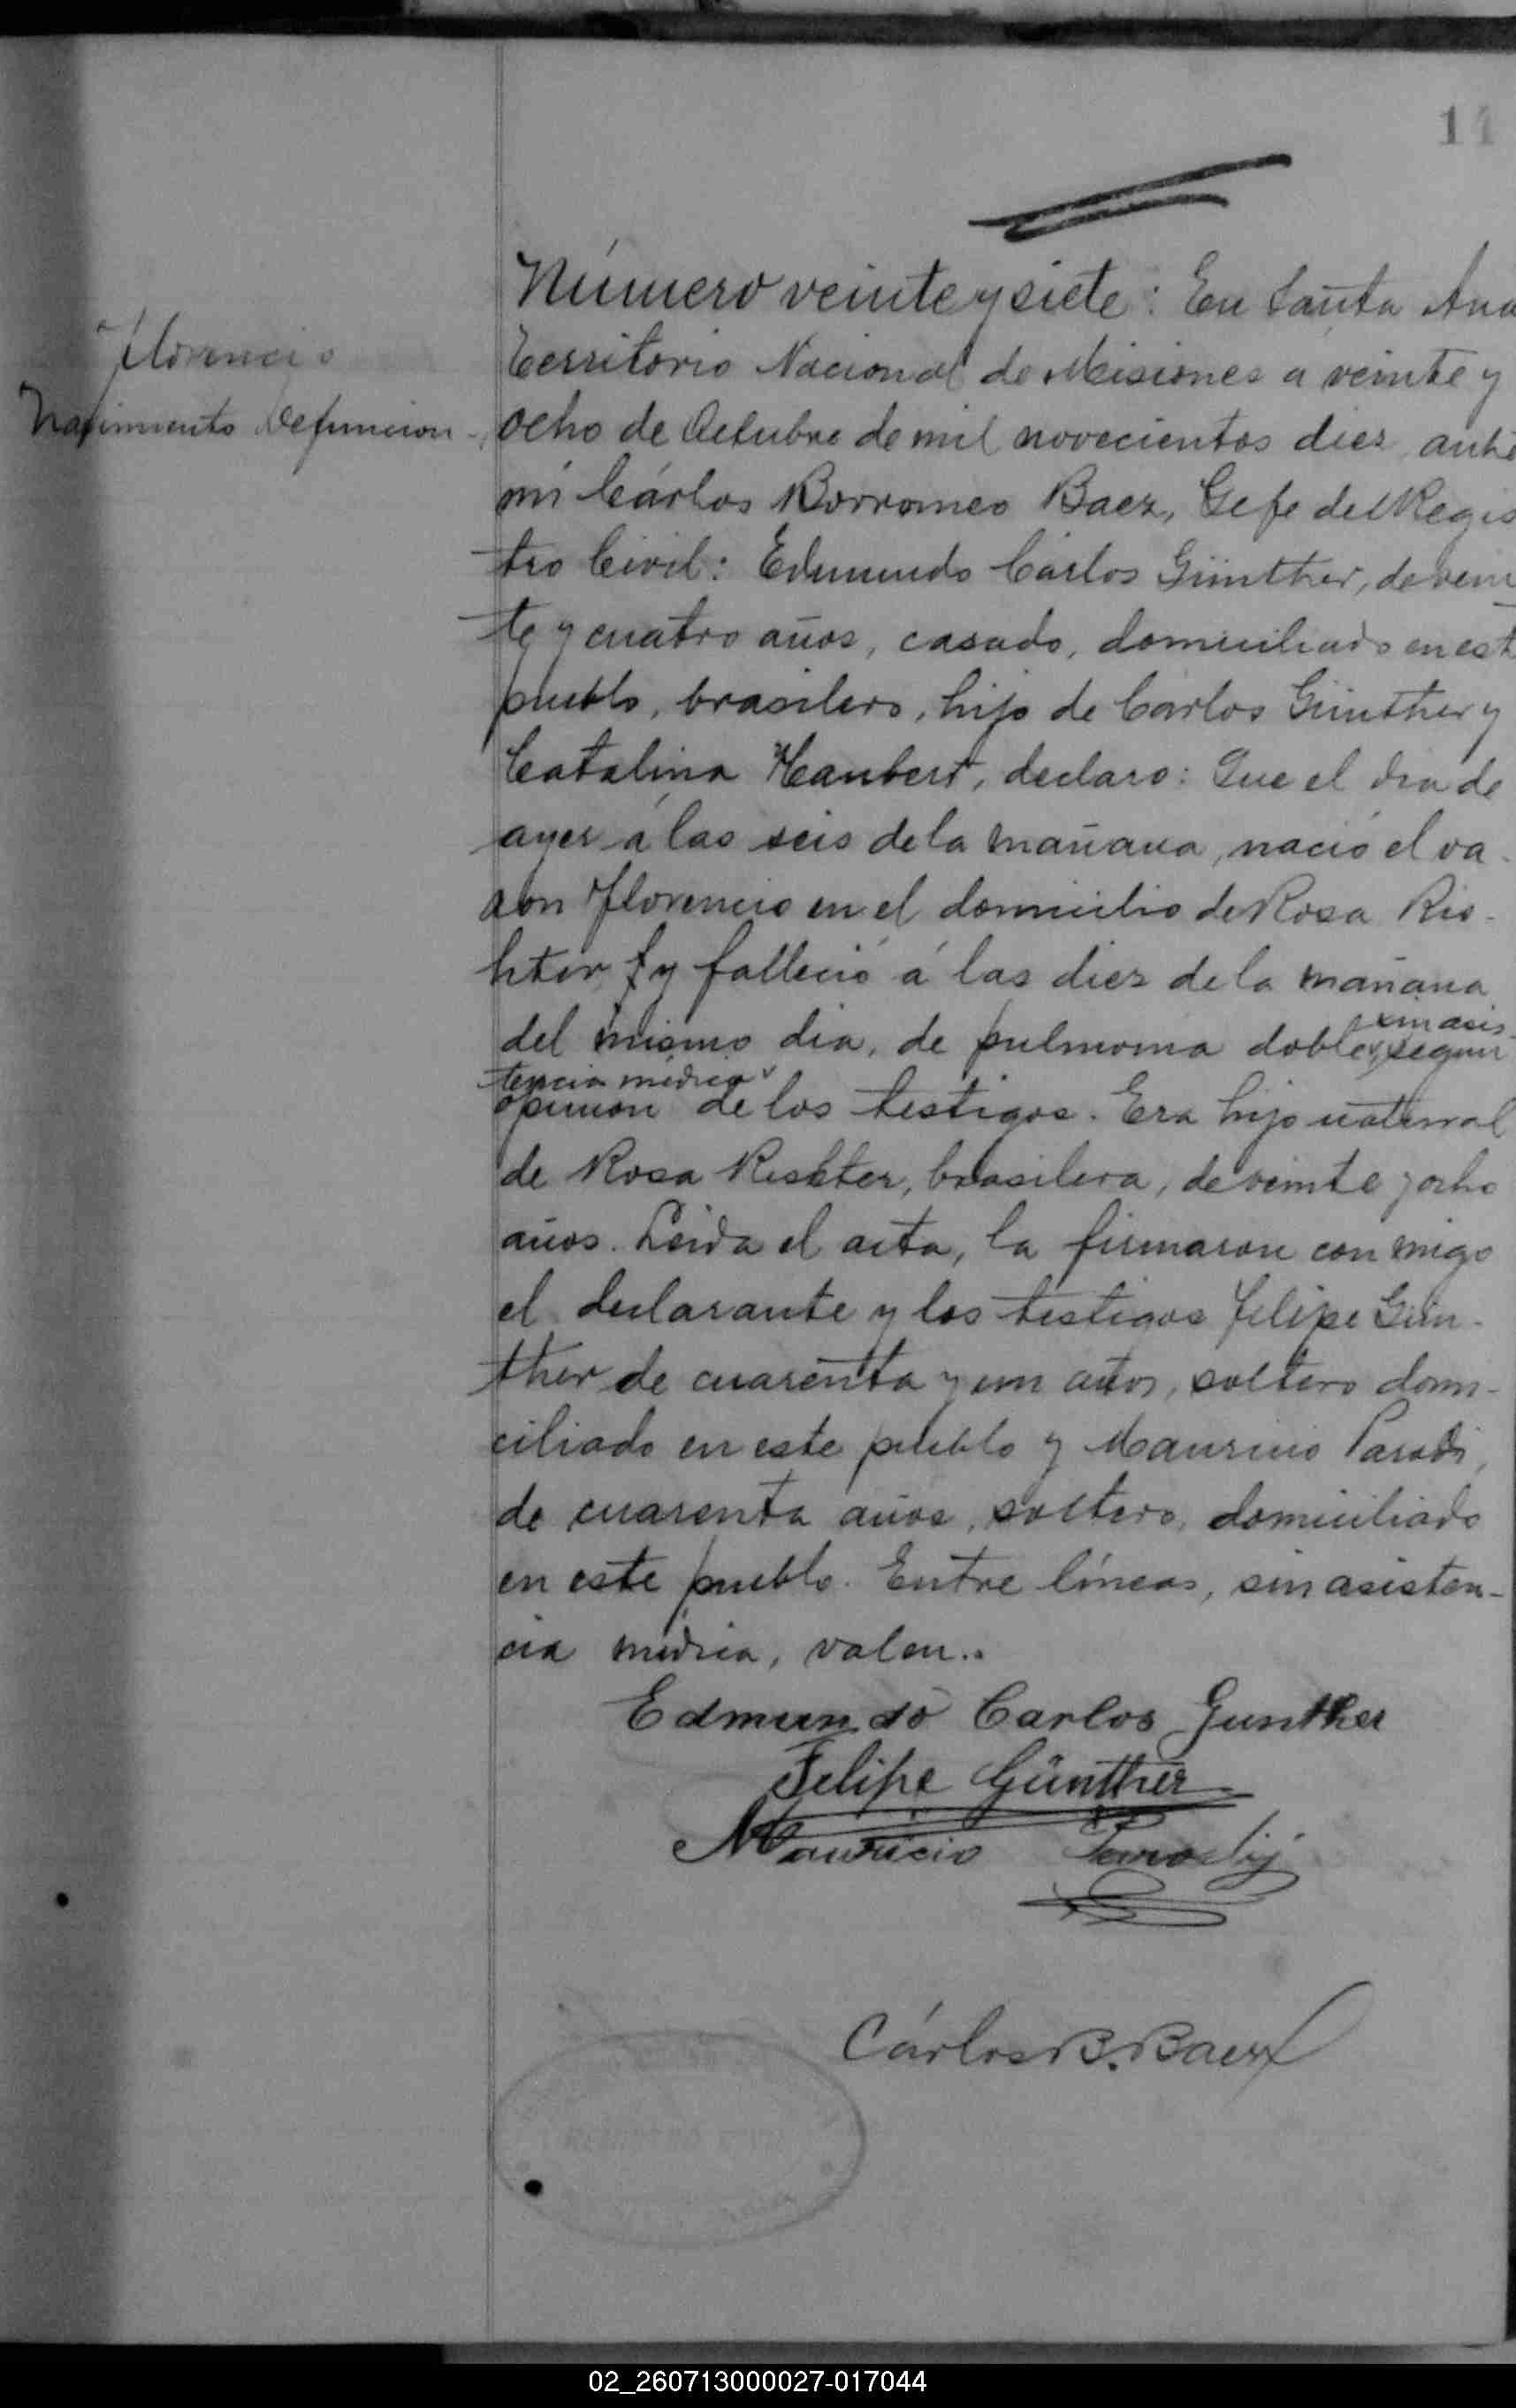 11
Número veinte y siete: En Santa Ana
Florencio
Territorio Nacional de Misiones a veinte y
Nacimiento Defuncion -
ocho de Octubre de mil novecientos diez, ante
mi Cárlos Borromeo Baez, Gefe del Regis
tro Civil: Edmundo Cárlos Günther, de vein
te y cuatro años, casado, domiciliado en est
pueblo, brasilero, hijo de Carlos Günther y
Catalina Haubert, declaro: Que el dia de
ayer á las seis de la mañana, nació el va-
ron Florencio en el domicilio de Rosa Ris-
hter y falleció á las diez de la mañana
sin asis-
del mismo dia, de pulmonia doble, segun
tencia médica
opinion de los testigos. Era hijo natural
de Rosa Rishter, brasilera, de veinte y ocho
años. Leida el acta, la firmaron con migo
el declarante y los testigos Felipe Gün-
ther de cuarenta y un años, soltero domi-
ciliado en este pueblo y Mauricio Parodi,
de cuarenta años, soltero, domiciliado
en este pueblo. Entre líneas, sin asisten-
cia médica, valen..
Edmundo Carlos Gunther
Felipe Günther
Mauricio Parodij
Cárlos B. Baez
02_260713000027-017044